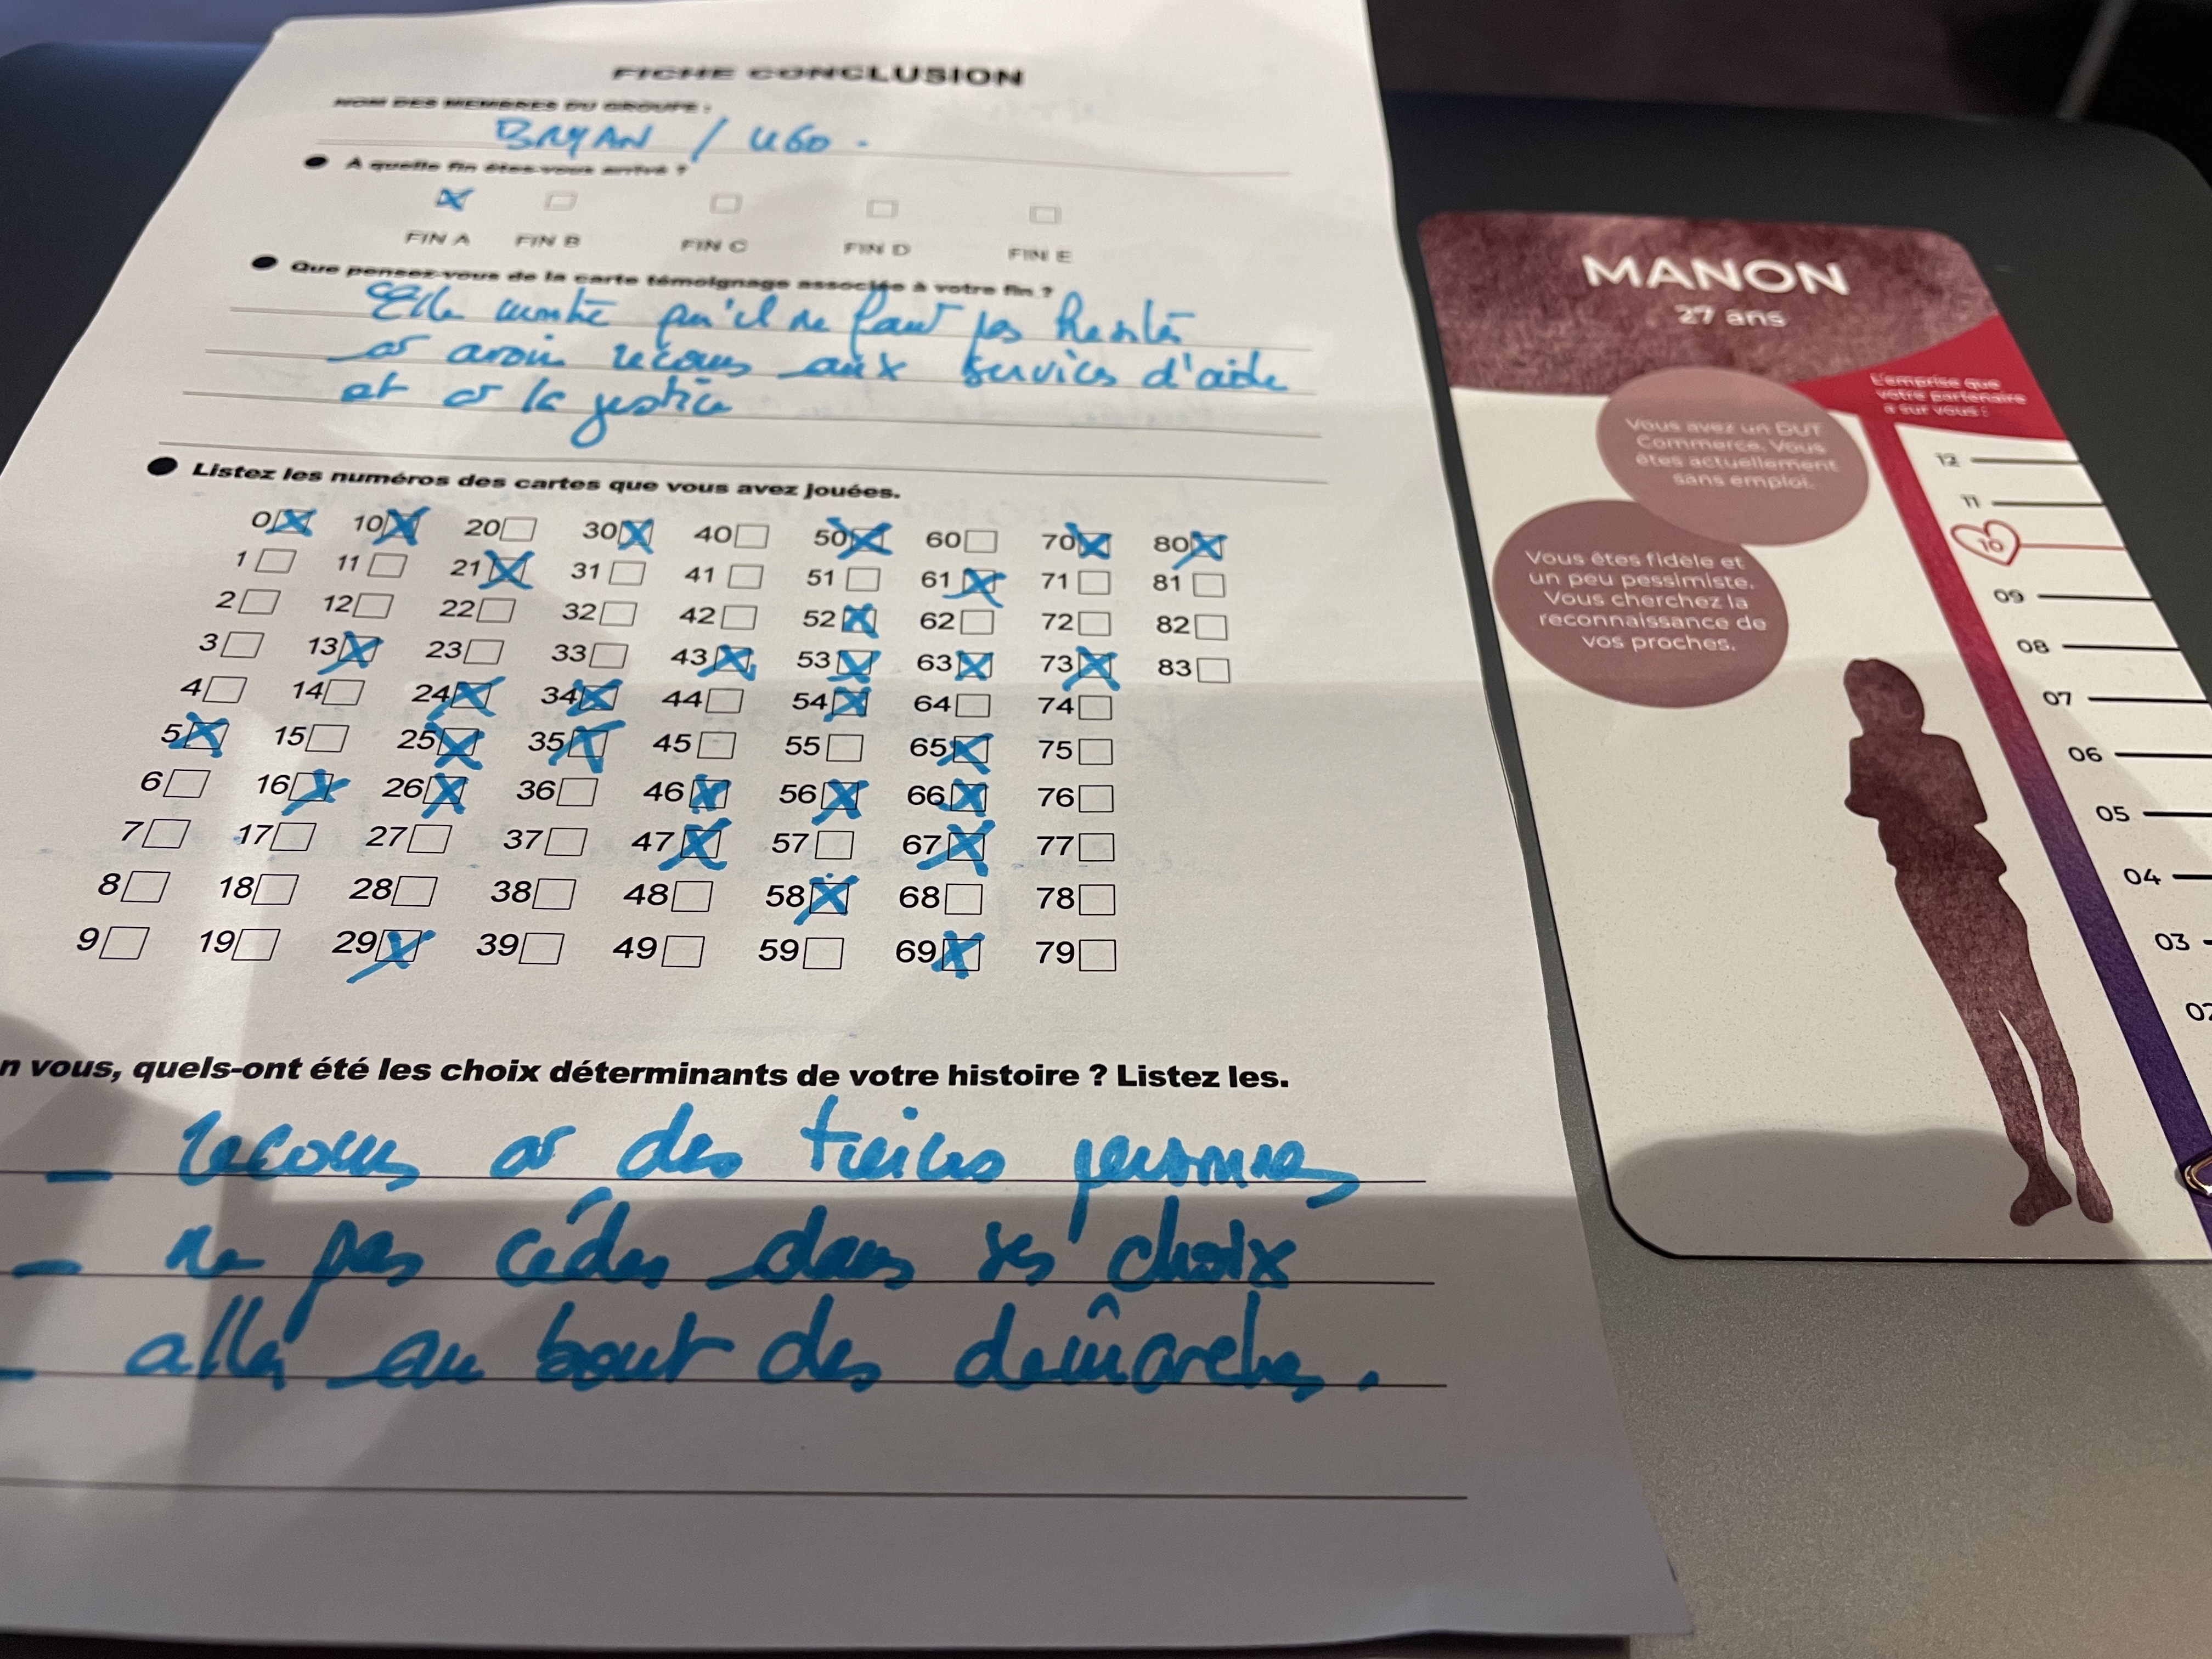 FICHE CONCLUSION
NOM DES MEMBRES DU GROUPE :
BRYAN / UGO.
● À quelle fin êtes-vous arrivé ?
FIN A FIN B FIN C FIN D FIN E
● Que pensez-vous de la carte témoignage associée à votre fin ?
Elle montre qu'il ne faut pas hésiter
à avoir recours aux services d'aide
et à la justice
● Listez les numéros des cartes que vous avez jouées.
0 10 20 30 40 50 60 70 80
1 11 21 31 41 51 61 71 81
2 12 22 32 42 52 62 72 82
3 13 23 33 43 53 63 73 83
4 14 24 34 44 54 64 74
5 15 25 35 45 55 65 75
6 16 26 36 46 56 66 76
7 17 27 37 47 57 67 77
8 18 28 38 48 58 68 78
9 19 29 39 49 59 69 79
n vous, quels-ont été les choix déterminants de votre histoire ? Listez les.
- recours à des tierces personnes
- ne pas céder dans ses choix
- aller au bout des démarches.
MANON
27 ans
L'emprise que
votre partenaire
a sur vous :
Vous avez un DUT
Commerce. Vous
êtes actuellement
sans emploi.
Vous êtes fidèle et
un peu pessimiste.
Vous cherchez la
reconnaissance de
vos proches.
12
11
10
09
08
07
06
05
04
03
02